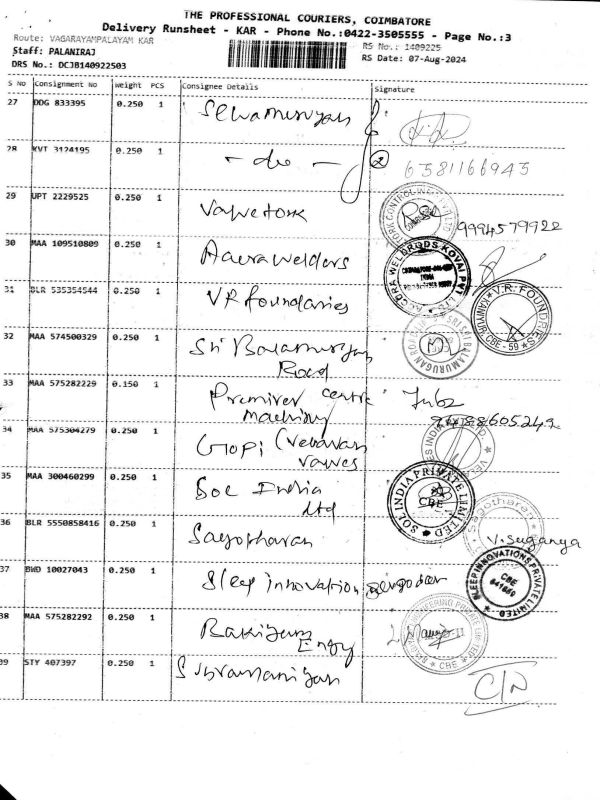 THE PROFESSIONAL COURIERS, COIMBATORE
Delivery Runsheet - KAR - Phone No.:0422-3505555 - Page No.:3
Route: VAGARAYAMPALAYAM KAR
RS No.: 1409225
Staff: PALANIRAJ
RS Date: 07-Aug-2024
DRS No.: DCJB140922503
S No Consignment No weight PCS Consignee Details Signature
27 DDG 833395 0.250 1 Selvamurugan
28 KVT 3124195 0.250 1 - do - 2 6381166945
29 UPT 2229525 0.250 1 Valvetork 9994579922
30 MAA 109510809 0.250 1 Aacrawelders
WELDRODS KOVAI PVT
31 BLR 535354544 0.250 1 VR foundaries
V.R. FOUNDRIES
CBE - 59
32 MAA 574500329 0.250 1 Sri Balamurugan
Road
SRI BALAMURUGAN
33 MAA 575282229 0.150 1 Premiver centre
Machinry
9488605249
34 MAA 575304279 0.250 1 Gopi (Vetavan
Valves
35 MAA 300460299 0.250 1 Soc India
Ltd
SOL INDIA PRIVATE LIMITED
CBE
36 BLR 5550858416 0.250 1 Sagotharan V. Suganya
Sagotharan
37 BWD 10027043 0.250 1 Sleep innovation
SLEEP INNOVATIONS PRIVATE LIMITED
CBE
641659
38 MAA 575282292 0.250 1 Bakiyam
Engg
CBE
39 STY 407397 0.250 1 Subramaniyan